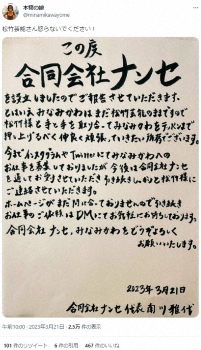 木曽の嫁
@minamikawayome
松竹芸能さん怒らないでください!
この度
合同会社ナンセ
を設立しましたのでご報告させていただきます。
とはいえ みなみかわはまだ松竹芸能のままですので
松竹様と手と手を取り合ってみなみかわをテッペンまで
押し上げるべく仲良く頑張っていきたい所存でございます。
今までインスタグラムやTwitterにてみなみかわへの
お仕事を募集しておりましたが今後は合同会社ナンセ
を通してお守りさせていただき引き続きしれっと松竹様に
ご連絡させていただきます。
ホームページがまだ間に合っておりませんので引き続き
お仕事のご依頼はDMにてお気軽にお待ちしております。
合同会社ナンセ、みなみかわをどうぞよろしく
お願いいたします。
2023年3月21日
合同会社ナンセ 代表 南川雅代
午前10:00 · 2023年3月21日 · 2.5万 件の表示
101 件のリツイート 6 件の引用 467 件のいいね